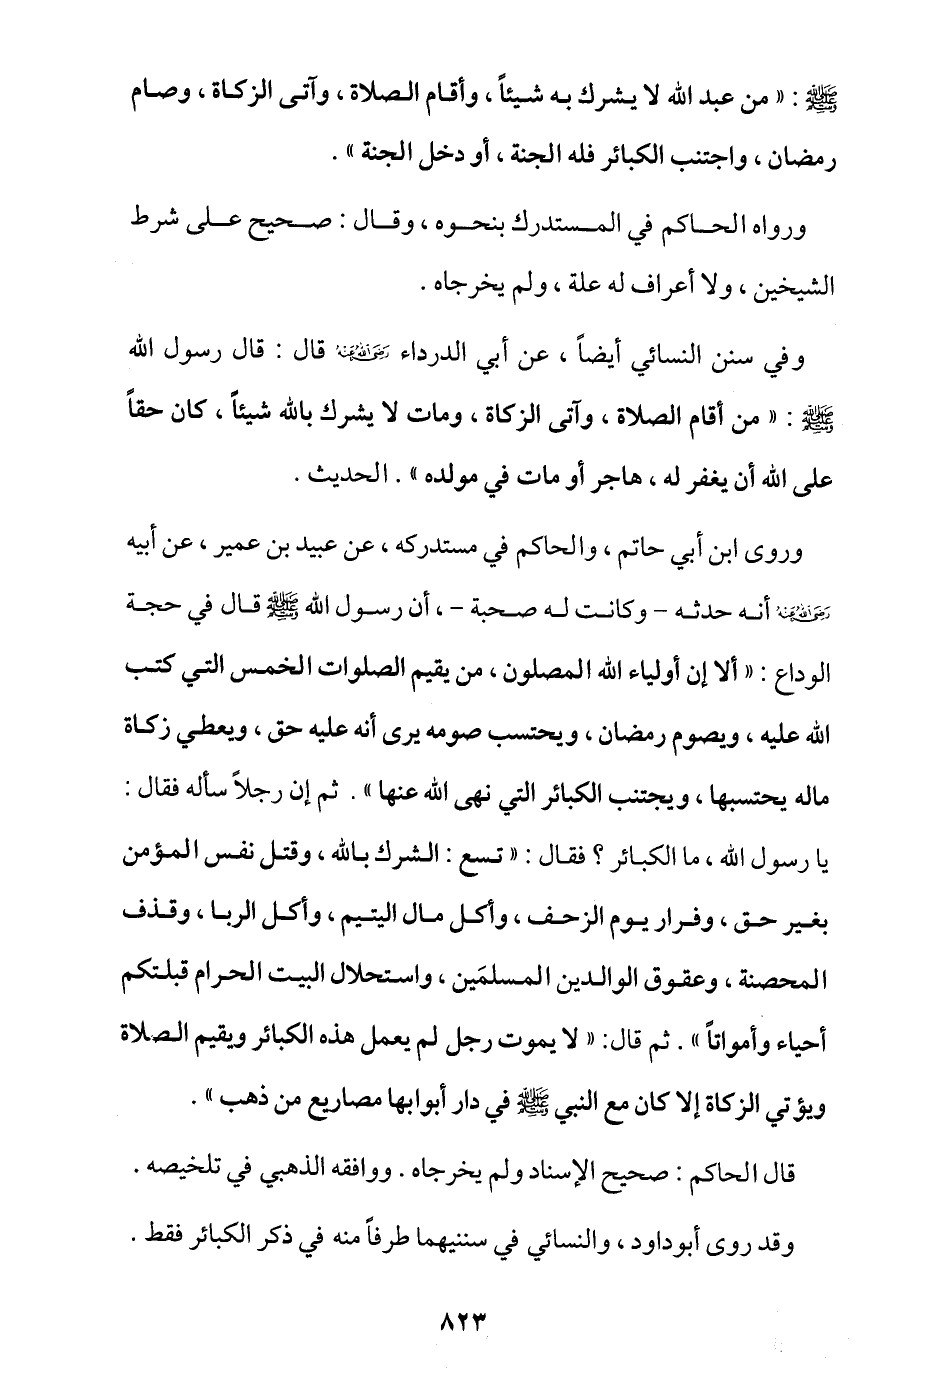 ﷺ : « من عبد الله لا يشرك به شيئاً ، وأقام الصلاة ، وآتى الزكاة ، وصام
رمضان ، واجتنب الكبائر فله الجنة ، أو دخل الجنة » .
ورواه الحاكم في المستدرك بنحوه ، وقال : صحيح على شرط
الشيخين ، ولا أعراف له علة ، ولم يخرجاه .
وفي سنن النسائي أيضاً ، عن أبي الدرداء رَضِيَ اللَّهُ عَنْهُ قال : قال رسول الله
ﷺ : « من أقام الصلاة ، وآتى الزكاة ، ومات لا يشرك بالله شيئاً ، كان حقاً
على الله أن يغفر له ، هاجر أو مات في مولده » . الحديث .
وروى ابن أبي حاتم ، والحاكم في مستدركه ، عن عبيد بن عمير ، عن أبيه
رَضِيَ اللَّهُ عَنْهُ أنه حدثه - وكانت له صحبة - ، أن رسول الله ﷺ قال في حجة
الوداع : « ألا إن أولياء الله المصلون ، من يقيم الصلوات الخمس التي كتب
الله عليه ، ويصوم رمضان ، ويحتسب صومه يرى أنه عليه حق ، ويعطي زكاة
ماله يحتسبها ، ويجتنب الكبائر التي نهى الله عنها » . ثم إن رجلاً سأله فقال :
يا رسول الله ، ما الكبائر ؟ فقال : « تسع : الشرك بالله ، وقتل نفس المؤمن
بغير حق ، وفرار يوم الزحف ، وأكل مال اليتيم ، وأكل الربا ، وقذف
المحصنة ، وعقوق الوالدين المسلمَين ، واستحلال البيت الحرام قبلتكم
أحياء وأمواتاً » . ثم قال: « لا يموت رجل لم يعمل هذه الكبائر ويقيم الصلاة
ويؤتي الزكاة إلا كان مع النبي ﷺ في دار أبوابها مصاريع من ذهب » .
قال الحاكم : صحيح الإسناد ولم يخرجاه . ووافقه الذهبي في تلخيصه .
وقد روى أبوداود ، والنسائي في سننيهما طرفاً منه في ذكر الكبائر فقط .
٨٢٣